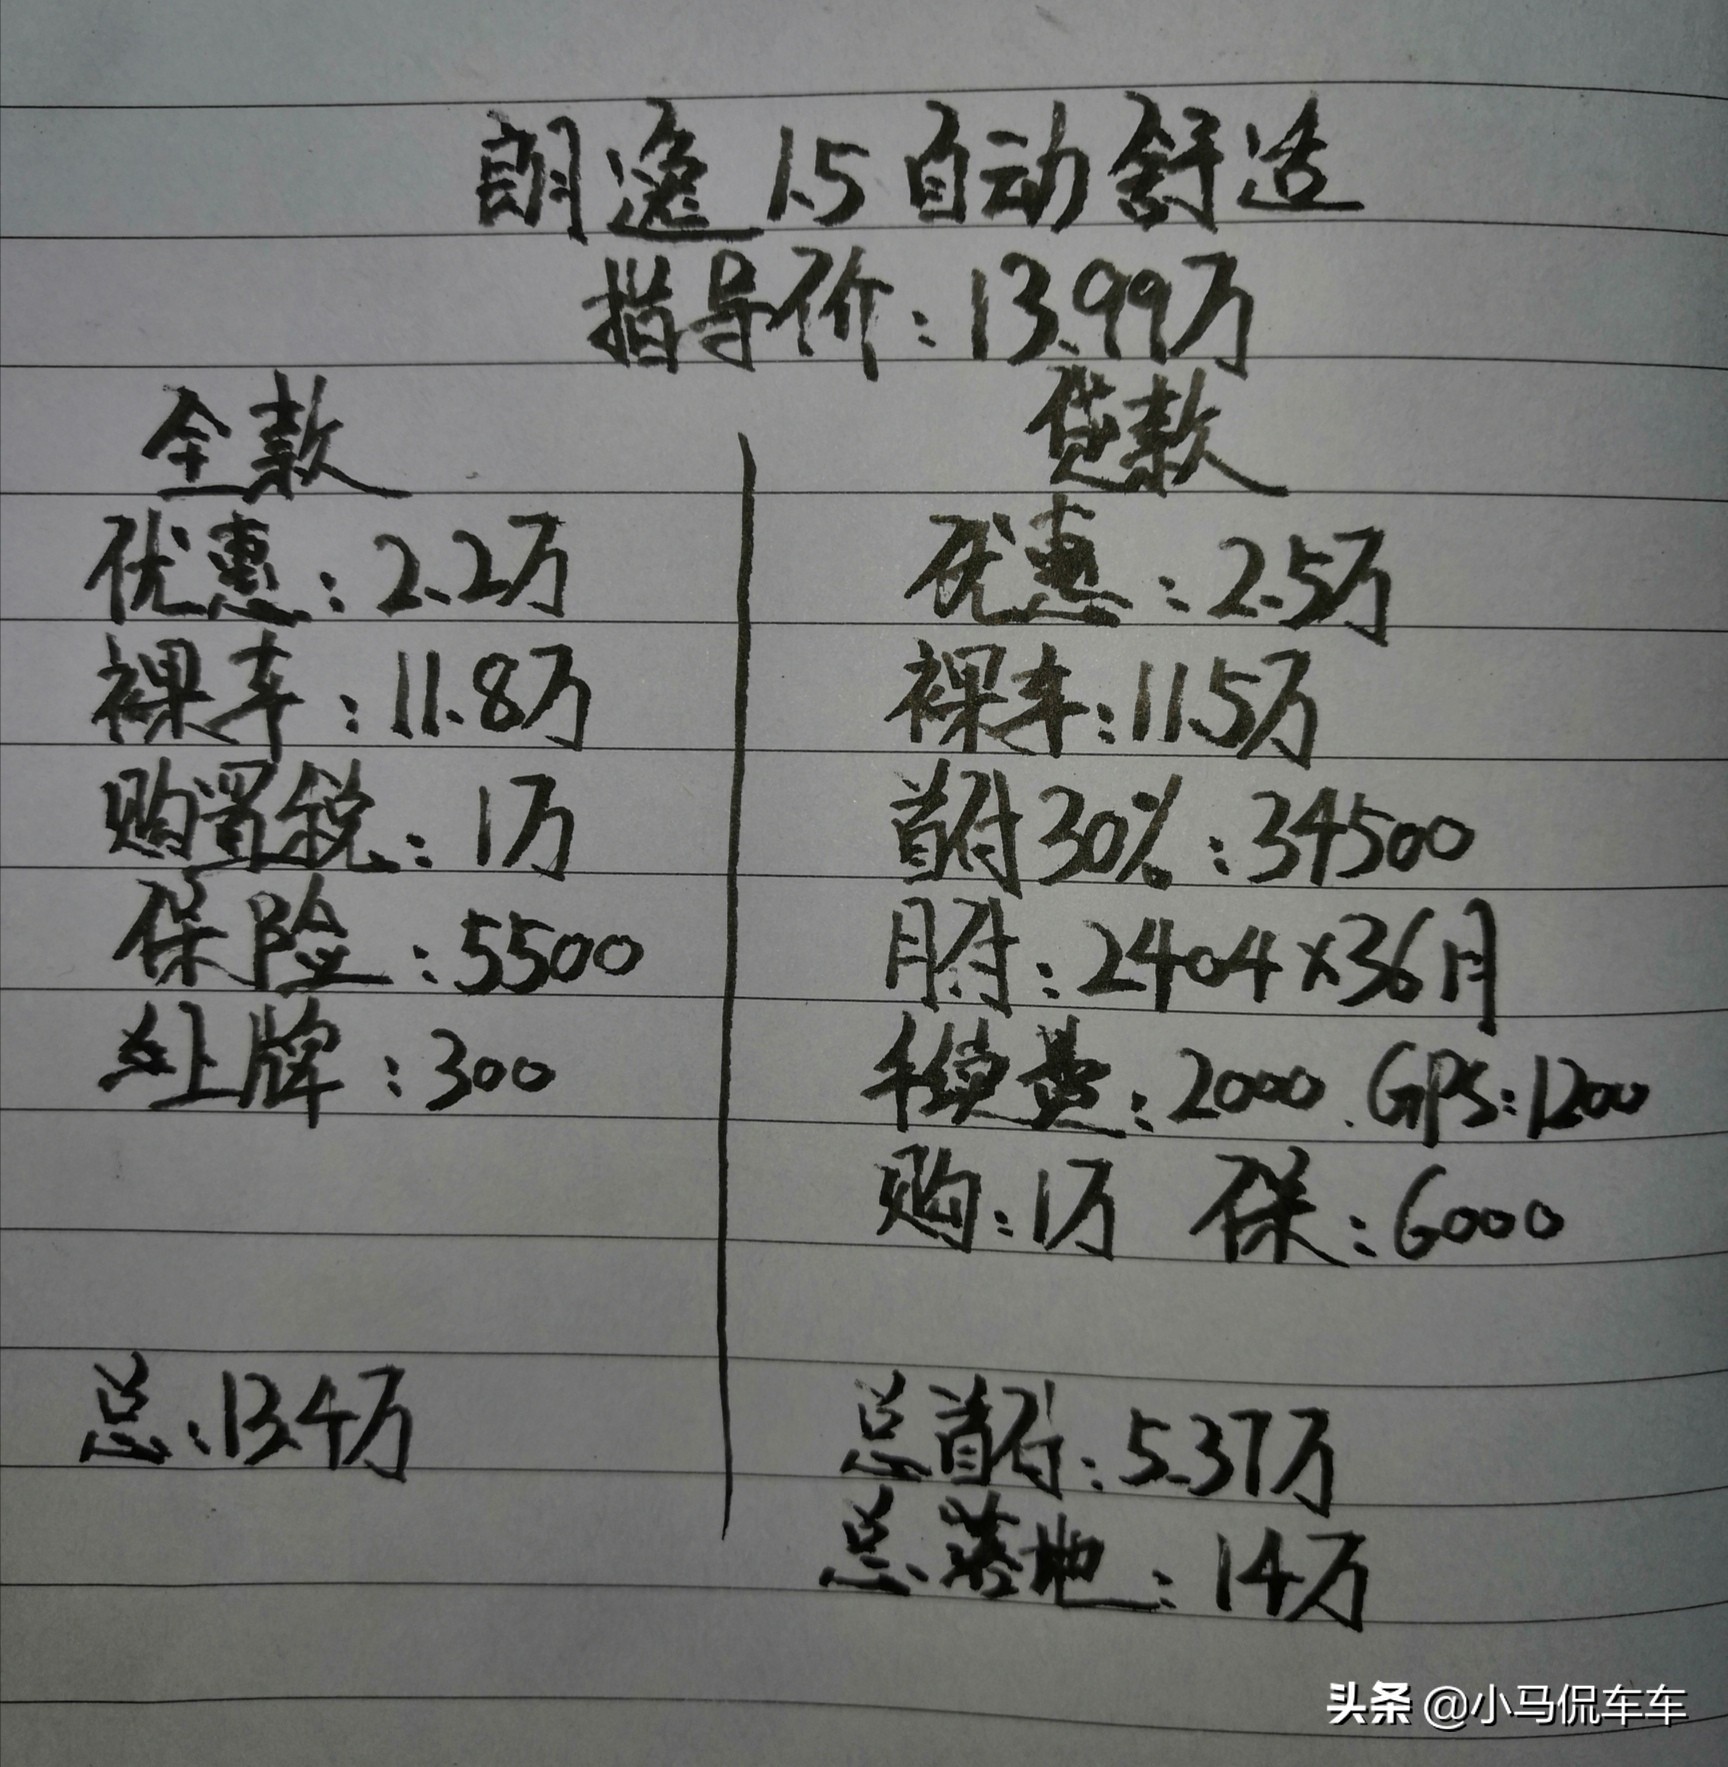 朗逸 1.5 自动舒适
指导价：13.99万
全款
优惠：2.2万
裸车：11.8万
购置税：1万
保险：5500
上牌：300
总：13.4万
贷款
优惠：2.5万
裸车：11.5万
首付30%：34500
月付：2404×36月
手续费：2000. GPS：1200
购：1万 保：6000
总首付：5.37万
总落地：14万
头条 @小马侃车车